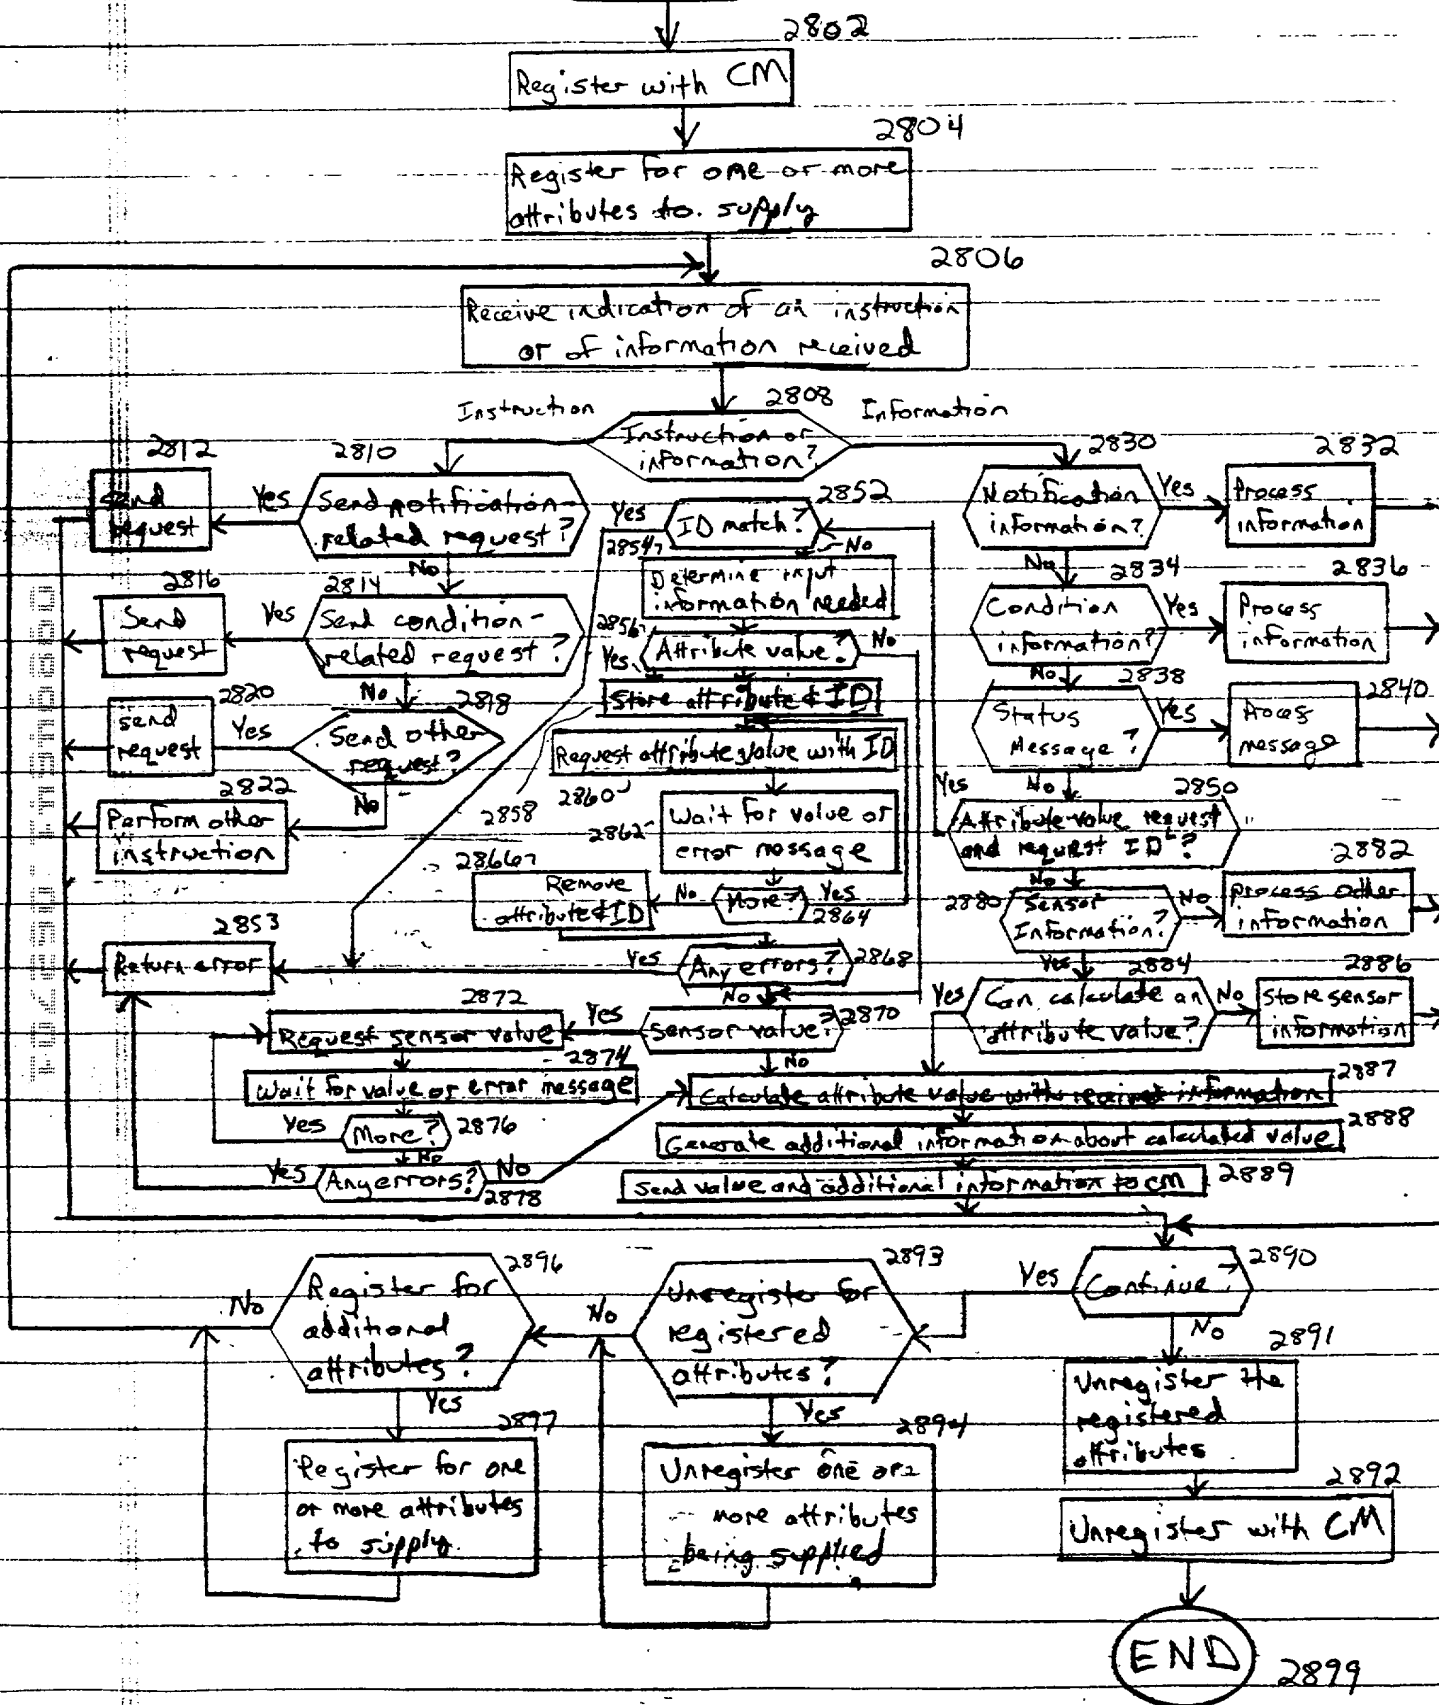 2802
Register with CM
2804
Register for one or more
attributes to supply
2806
Receive indication of an instruction
or of information received
2808
Instruction
Information
Instruction or
information?
2812
Send
request
Yes
2810
Send notification-
related request?
No
2816
Send
request
Yes
2814
Send condition-
related request?
No
2820
send
request
Yes
2818
Send other
request?
No
2822
Perform other
instruction
2852
Yes
ID match?
No
2854
Determine input
information needed
2856
Attribute value?
No
Yes
Store attribute & ID
2858
Request attribute value with ID
2860
2862
Wait for value or
error message
2866
Remove
attribute & ID
No
More?
Yes
2864
2853
Return error
Yes
Any errors?
2868
No
2872
Request sensor value
Yes
Sensor value?
2870
No
2874
Wait for value or error message
Yes
More?
2876
No
Yes
Any errors?
No
2878
2830
Notification
information?
Yes
2832
Process
information
No
2834
Condition
information?
Yes
2836
Process
information
No
2838
Status
Message?
Yes
2840
Process
message
No
2850
Yes
Attribute value request
and request ID?
No
2880
Sensor
Information?
No
2882
Process other
information
Yes
2884
Yes
Can calculate an
attribute value?
No
2886
Store sensor
information
2887
Calculate attribute value with received information
2888
Generate additional information about calculated value
2889
Send value and additional information to CM
2890
Continue?
Yes
No
2891
Unregister the
registered
attributes
2892
Unregister with CM
END
2899
2893
Unregister for
registered
attributes?
No
Yes
2894
Unregister one or
more attributes
being supplied
2896
Register for
additional
attributes?
No
Yes
2897
Register for one
or more attributes
to supply